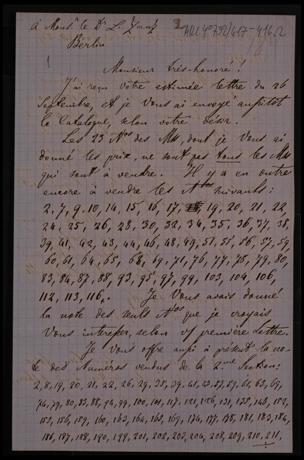 à Mons. le Dr L. Zunz
Berlin
Monsieur très-honoré!
J'ai reçu Votre estimée lettre du 26
Septembre, et je Vous ai envoyé aussitôt
le Catalogue, selon votre désir.
Les 23 Nos des Mss, dont je Vous ai
donné les prix, ne sont pas tous les Mss
qui sont à vendre. Il y a en outre
encore à vendre les Nos suivants:
2, 7, 9, 10, 14, 15, 16, 17, 19, 20, 21, 22
24, 25, 26, 28, 30, 32, 34, 35, 36, 37, 38,
39, 41, 42, 43, 44, 46, 48, 49, 51, 56, 57, 59
60, 61, 64, 65, 68, 69, 71, 76, 77, 78, 79, 80
83, 84, 87, 88, 93, 95, 97, 99, 103, 104, 106,
112, 113, 116. Je Vous avais donné
la note des seuls Nos que je croyais
Vous intéresser, selon première lettre.
Je Vous offre aussi à présent la no-
te des Numéros vendus de la 2me Section:
2, 8, 19, 20, 21, 22, 26, 29, 35, 39, 41, 61, 63, 69,
79, 80, 83, 88, 94, 99, 100, 101, 117,
160, 163, 164, 165, 169, 174, 177, 178, 181, 183, 184,
186, 187, 188, 190, 199, 201, 202, 203, 204, 208, 209, 210, 211,